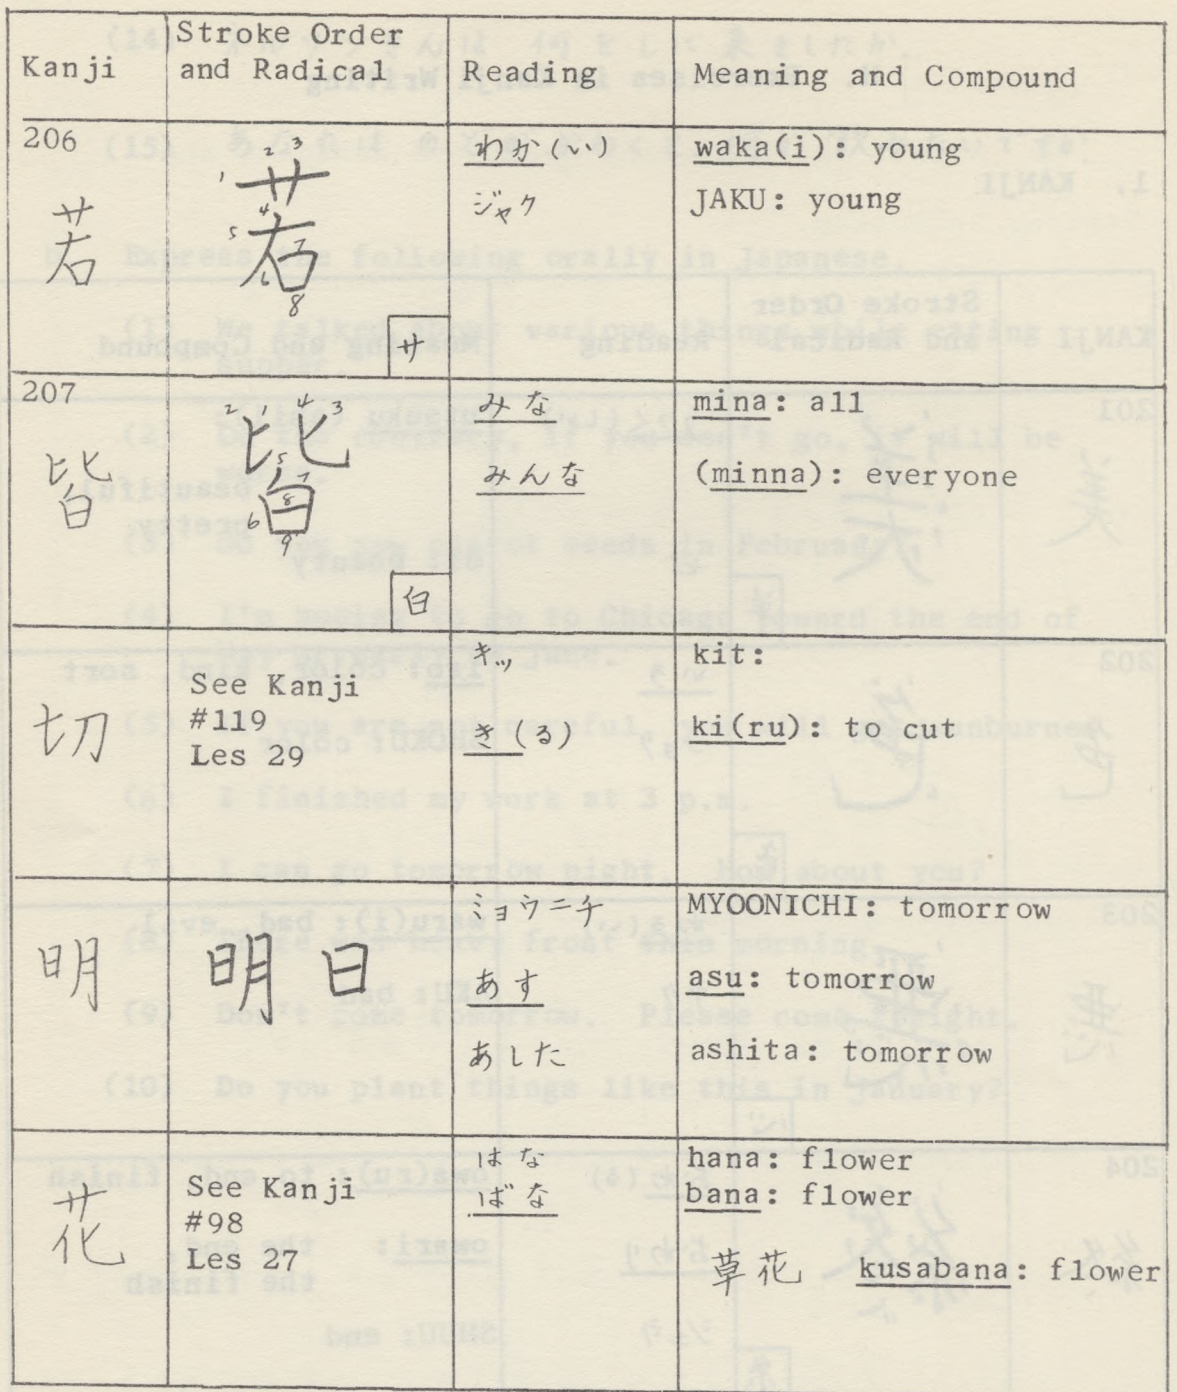 Kanji
Stroke Order
and Radical
Reading
Meaning and Compound
206
若
1 2 3 4 5 6 7 8
若
サ
わか(い)
ジャク
waka(i): young
JAKU: young
207
皆
2 1 4 3 5 6 7 8 9
皆
白
みな
みんな
mina: all
(minna): everyone
切
See Kanji
#119
Les 29
キッ
き(る)
kit:
ki(ru): to cut
明
明日
ミョウニチ
あす
あした
MYOONICHI: tomorrow
asu: tomorrow
ashita: tomorrow
花
See Kanji
#98
Les 27
はな
ばな
hana: flower
bana: flower
草花 kusabana: flower